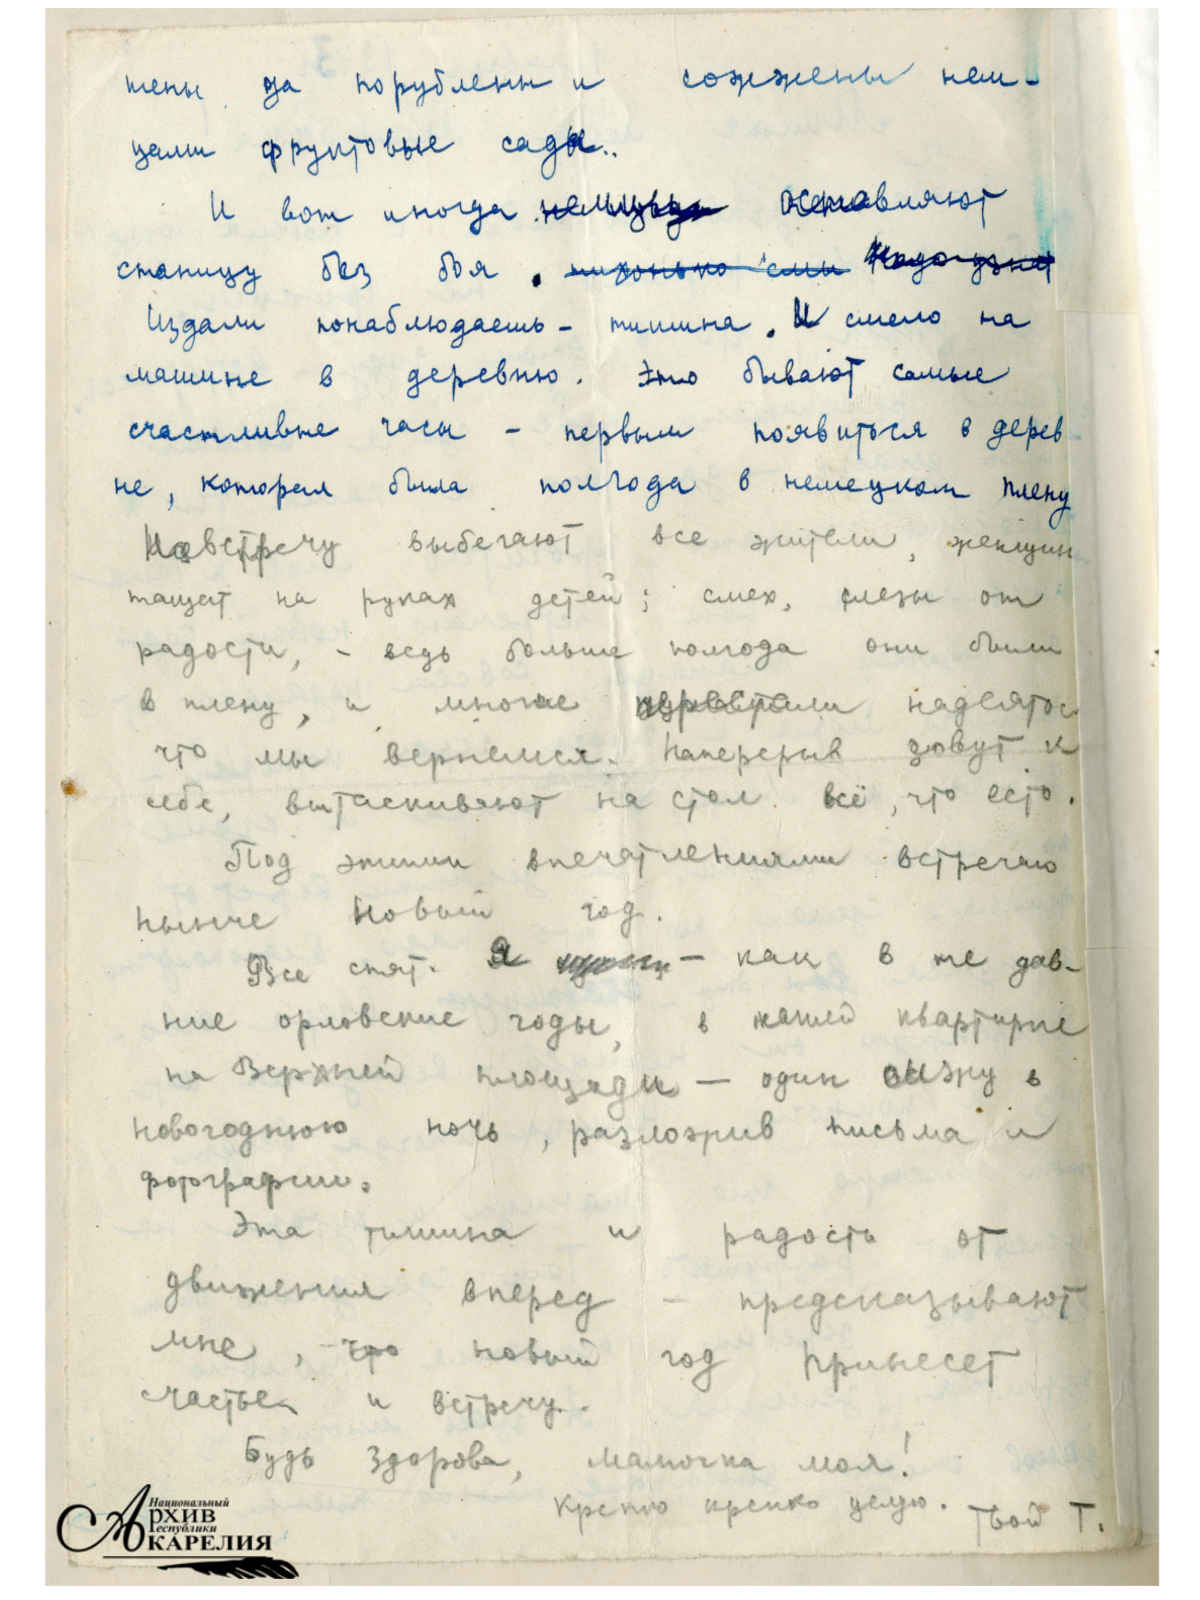 тены да порубленн и сожжены нем-
цами фруктовые сады..
И вот иногда немцы оставляют
станицу без боя. тихонько
Издали понаблюдаешь - тишина. И смело на
машине в деревню. Это бывают самые
счастливые часы - первым появиться в дерев
не, которая была полгода в немецком плену
Навстречу выбегают все жители, женщин
тащат на руках детей; смех, слезы от
радости, - ведь больше полгода они были
в плену, и многие перестали надеяться
что мы вернемся. Наперерыв зовут к
себе, вытаскивают на стол всё, что есть.
Под этими впечатлениями встречаю
нынче Новый год.
Все спят. Я - как в те дав-
ние орловские годы, в нашей квартирке
на Верхней площади - один сижу в
новогоднюю ночь, разложив письма и
фотографии.
Эта тишина и радость от
движения вперед - предсказывают
мне, что новый год принесет
счастье и встречу.
Будь здорова, мамочка моя!
Крепко крепко целую. Твой Т.
Национальный
Архив
Республики
Карелия